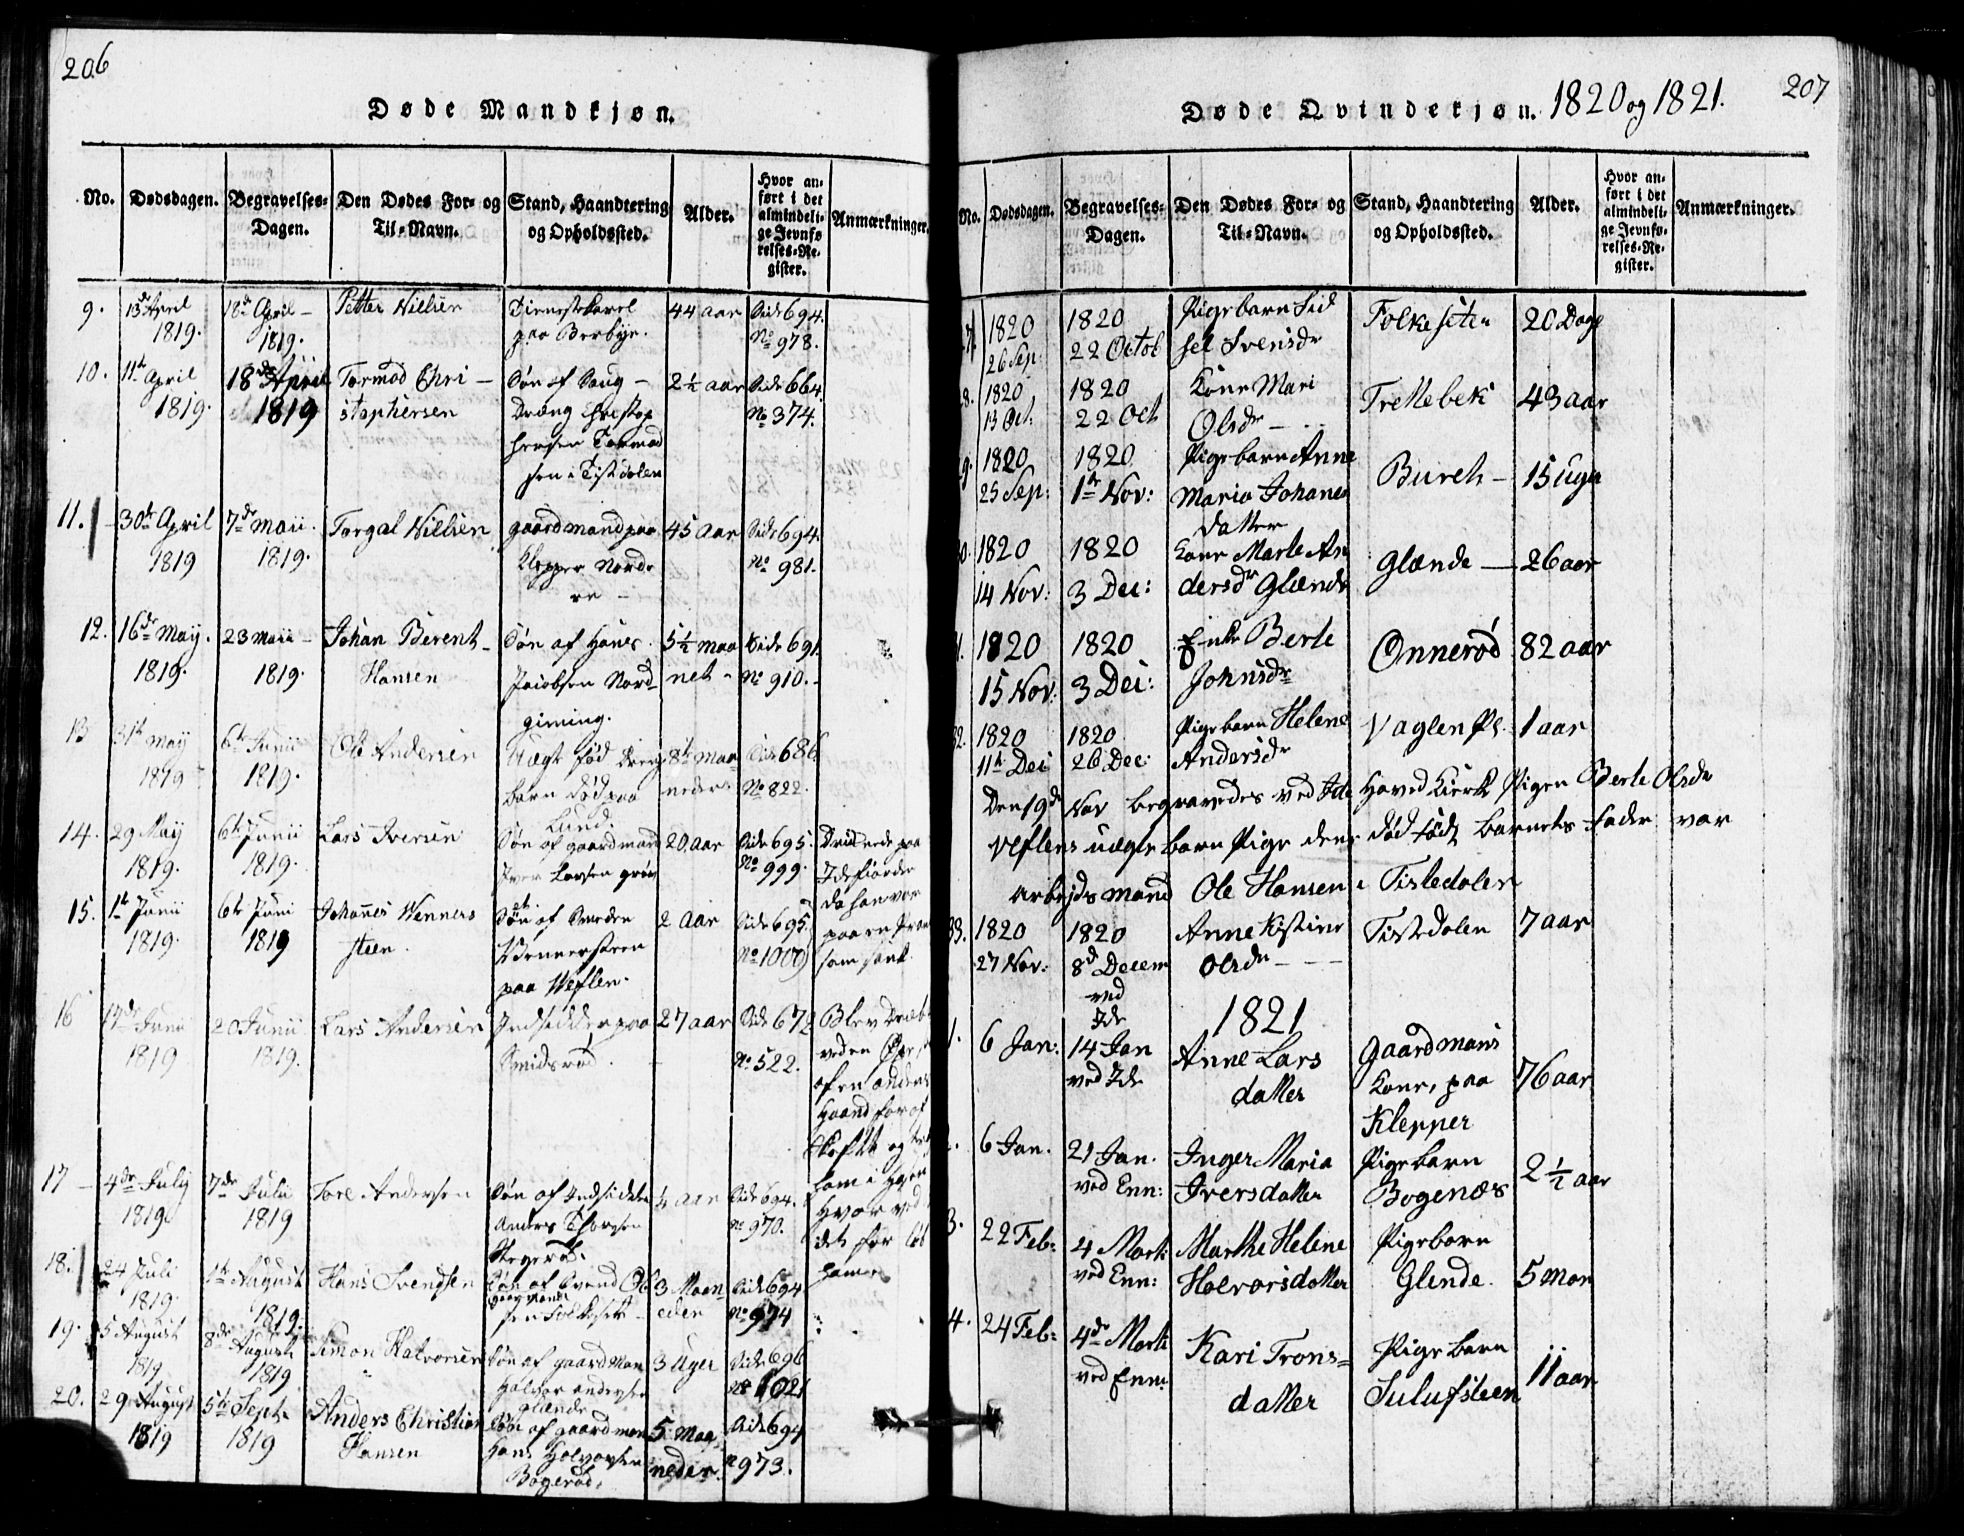 206
Døde Mandkjøn.
No. Dødsdagen. Begravelses-Dagen. Den Dødes For- og Til-Navn. Stand, Haandtering og Opholdssted. Alder. Hvor anført i det almindelige Jevnførelses-Register. Anmærkninger.
9. 13de April 1819. 18de April 1819. Petter Nielsen Tienestekarl paa Berbye. 44 aar Side 694. No 978.
10. 11te April 1819. 18de April 1819 Tormod Christophersen Søn af Dreng Tormodsen i Tistedalen 2½ aar Side 664. No 374.
11. 30te April 1819 7de Maii 1819. Torgal Nielsen gaardmand paa Klepper Nordre 45 Aar Side 694. No 981.
12. 16de May 1819. 23 Maii 1819. Johan Berent Hansen Søn af Hans Jacobsen Nordgiming. 5½ maanet Side 691. No 910.
13 31te May 1819 6te Junii 1819. Ole Andersen Uægte fød Dreng barn død paa Lund. 8te maaneder Side 686. No 822.
14. 29 May 1819. 6te Junii 1819. Lars Iversen Søn af gaardmand Iver Larsen 20 aar Side 695. No 999. paa Idefiorden da han var paa en som sank.
15. 1te Junii 1819. 6te Juni 1819 Johannes Wennersteen. Søn af Wennersteen paa Weflen. 2 Aar Side 695. No 1000
16 17de Junii 1819 20 Junii 1819. Lars Andersen Indsidder paa Smidsrød. 27 aar Side 672 No 522. Blev Dræbt ved en af en anden Haand for af Skaftet og ham i Hvor ved det for ham
17 4de July 1819. 7de Julii 1819 Tore Andersen Søn af Indsidder Anders Thorsen Stegerød. ¼ aar Side 694. No 970.
18. 24 Juli 1819. 1te August 1819. Hans Svendsen Søn af Svend Olsen Folkesete 3 Maaneder Side 694 No 974
19. 5 August 1819 8de August 1819 Simon Halvorsen Søn af gaardman Halvor Andersen Glænde 3 Uger Side 696 No 1021
20. 29 August 1819 5te Sept. 1819 Anders Christian Hansen Søn af gaardman Hans Halvorsen Bogerød. 5 Maaneder Side 694 No 973.
207
Døde Qvindekjøn. 1820 og 1821.
No. Dødsdagen. Begravelses-Dagen. Den Dødes For- og Til-Navn. Stand, Haandtering og Opholdssted. Alder. Hvor anført i det almindelige Jevnførelses-Register. Anmærkninger.
7. 1820 26 Sep: 1820 22 Octob Pigebarn Sidsel Svensdr Folkeseten 20 Dage
8. 1820 13 Oct. 1820 22 Oct Kone Mari Olsdr Trellebek 43 aar
9. 1820 25 Sep: 1820 1te Nov: Pigebarn Anne Maria Johanes datter Bureh 15 Uger
0. 1820 14 Nov: 1820 3 Dec: Kone Marte Andersdr Glænde Glænde 26 aar
1. 1820 15 Nov: 1820 3 Dec: Enke Berte Johnsdr Onnerød 82 aar
32. 1820 11te Dec 1820 26 Dec: Pigebarn Helene Andersdr Vaglen Pl. 1 aar
Den 19de Nov begravedes ved Ide Hoved Kierk Pigen Berte Olsdr
Veflens uægte barn Pige dend død født barnets fader var
arbejdsmand Ole Hansen i Tistedalen
33. 1820 27 Nov: 1820 8de Decem ved Ide Anne Kistine Olsdr Tistedalen 7 aar
1821
1. 6 Jan: 14 Jan ved Ide Anne Lars datter Gaardmans Kone, paa Klepper 76 aar
2. 6 Jan. 21 Jan. ved Enn: Inger Maria Iversdatter Pigebarn Bogenæs 2½ aar
3. 22 Feb: 4 Marti ved Enn: Marthe Helene Halvorsdatter Pigebarn Glende. 5 Mon
4. 24 Feb: 4de Marti ved Enn: Kari Trons=datter Pigebarn Sulufsteen 11 aar